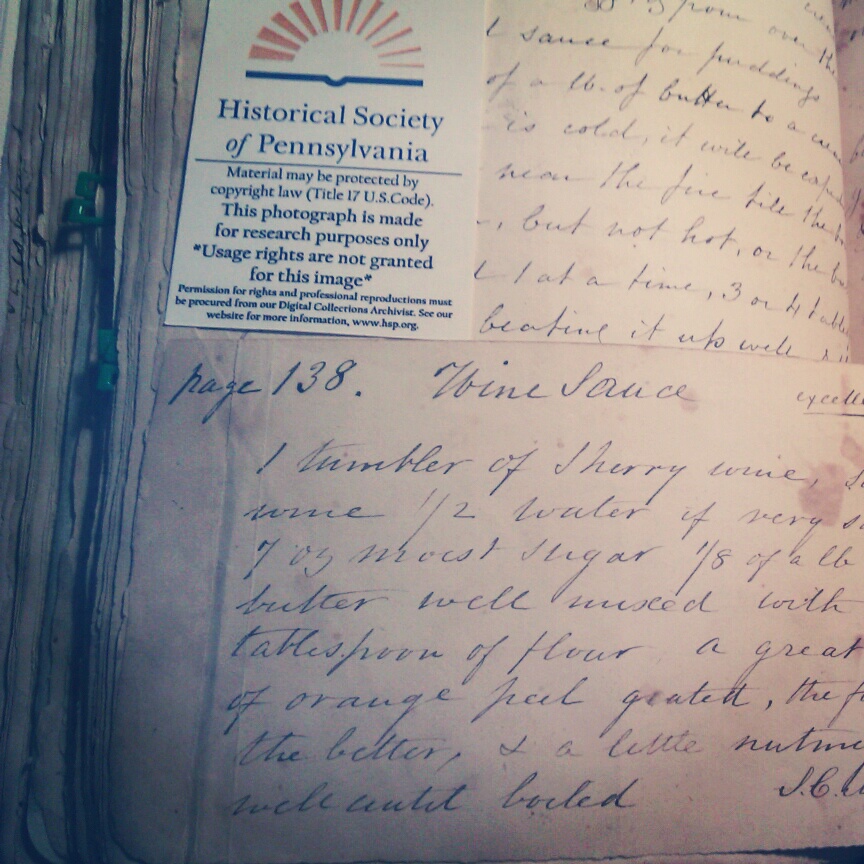 Historical Society
of Pennsylvania
Material may be protected by
copyright law (Title 17 U.S.Code).
This photograph is made
for research purposes only
*Usage rights are not granted
for this image*
Permission for rights and professional reproductions must
be procured from our Digital Collections Archivist. See our
website for more information, www.hsp.org.
pour over the
sauce for puddings
of a lb. of butter to a
is cold, it will be
near the fire till the
, but not hot, or the
1 at a time, 3 or 4
beating it up well &
page 138. Wine Sauce
1 tumbler of Sherry wine,
wine 1/2 water if very
7 oz moist sugar 1/8 of a lb
butter well mixed with
tablespoon of flour a great
of orange peel grated, the
the better, & a little
well until boiled S.C.